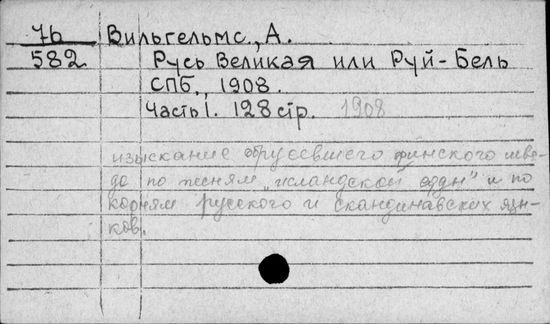 7б Вильгельмс., А.
582 Русь Великая или Руй-Бель
СПб., 1908.
Часть I. 128 стр. 1908
изыскание обрусевшего финского шве-
да по песням "исландской эдды" и по
корням русского и скандинавских язы-
ков.